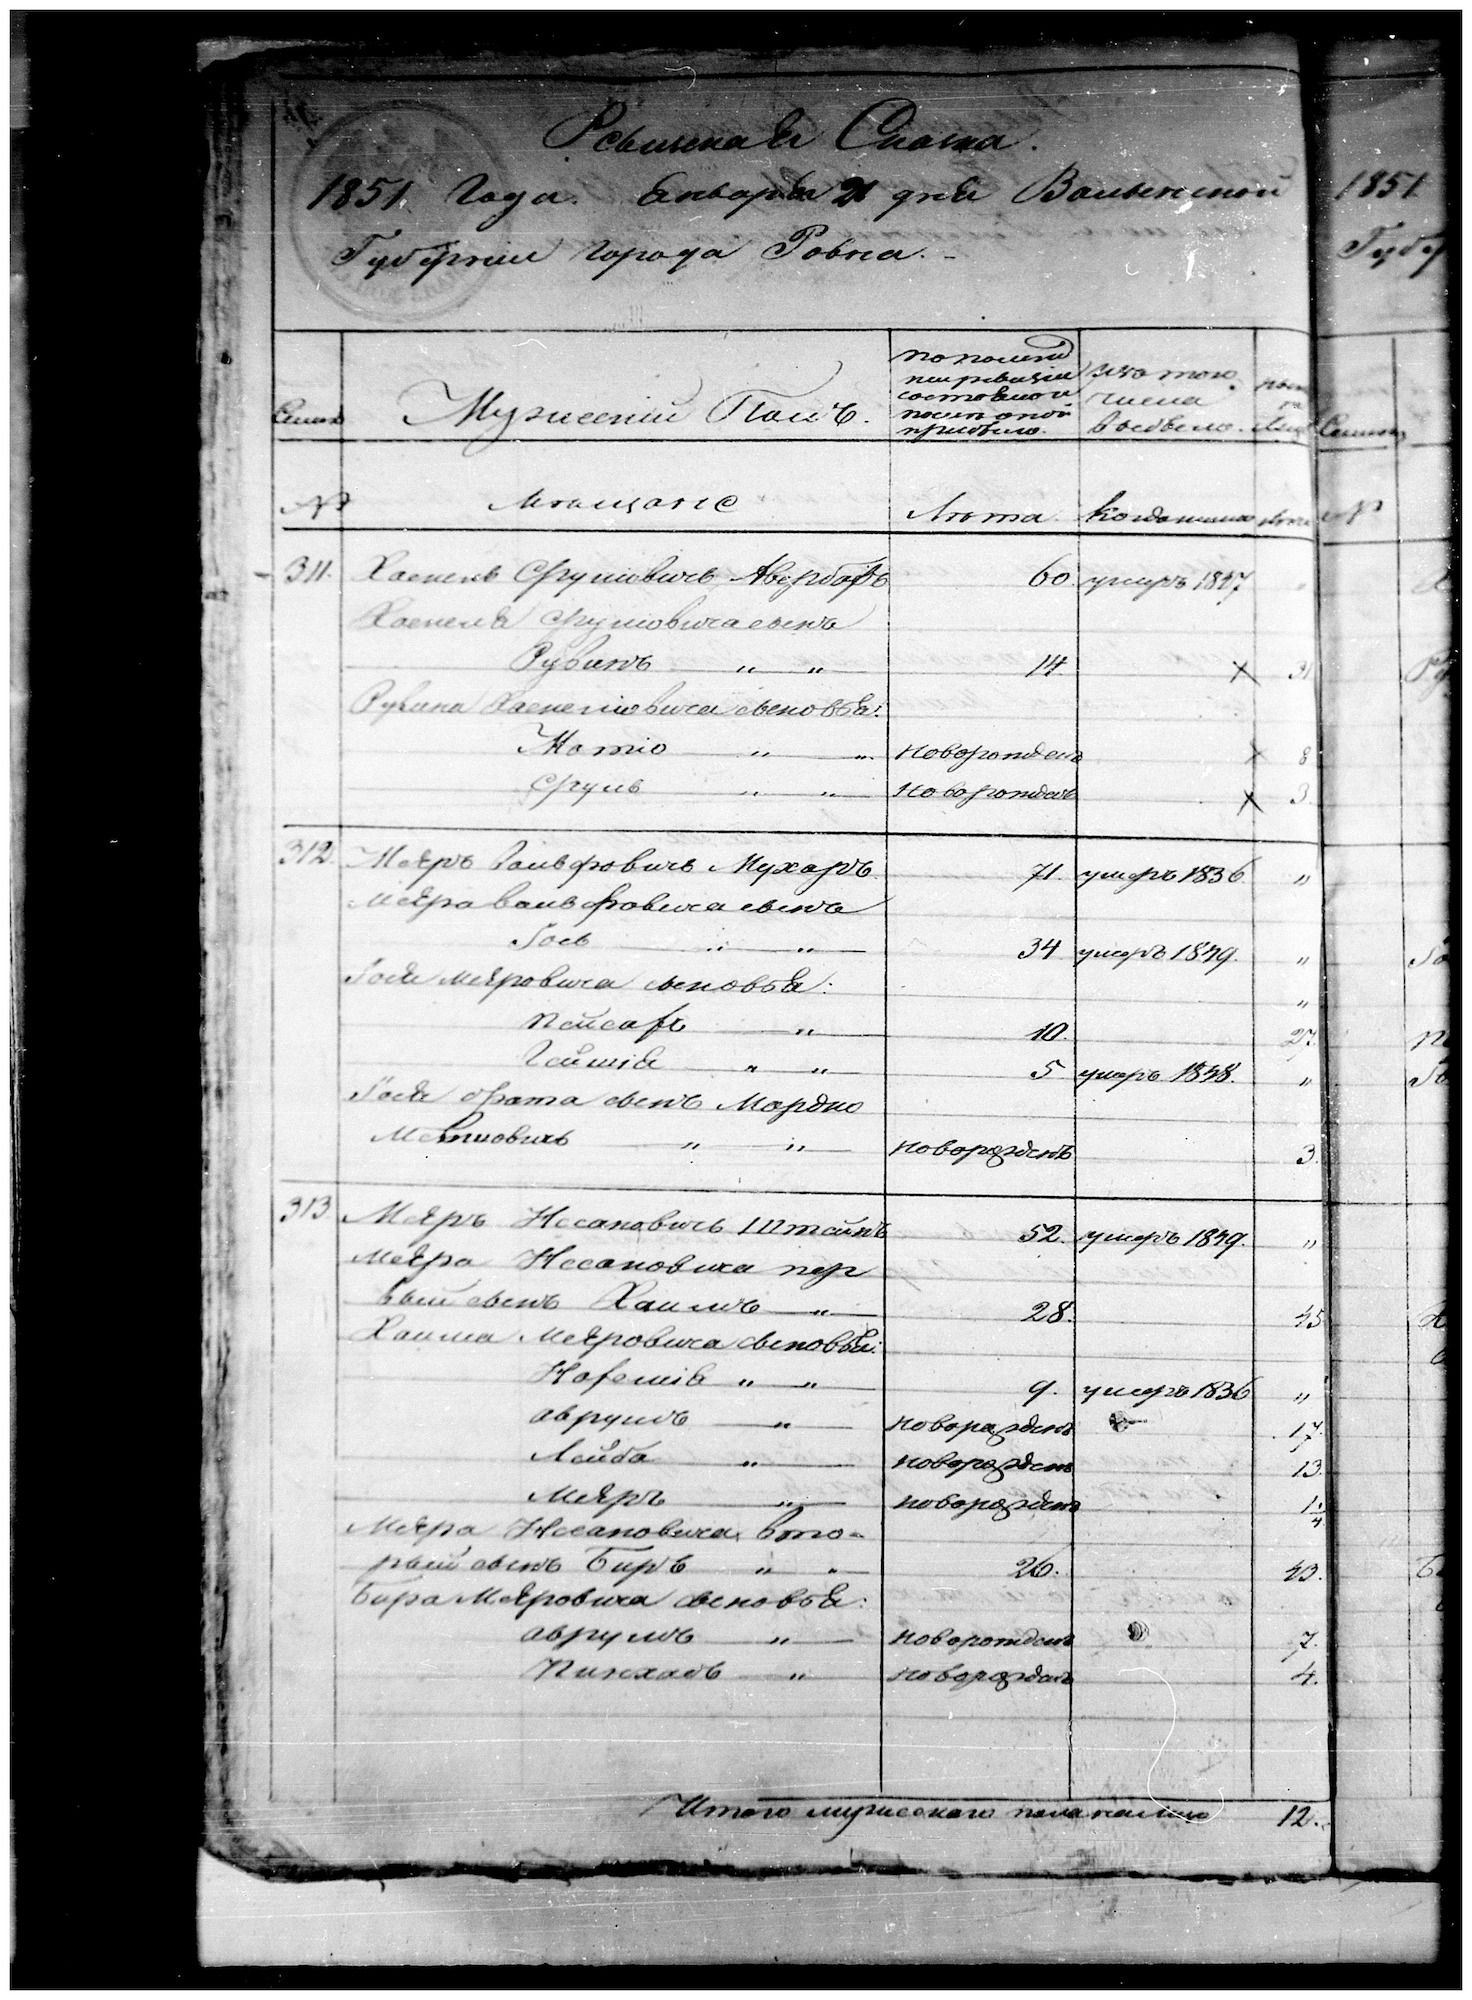 Ревизская Сказка.
1851. Года. Января 21 дня Волынской
Губернии города Ровна.
Семьи
Мужеский Полъ.
По последней ревизии состояло и после оной прибыло.
Изъ того числа выбыло.
№
Мещане
Лета.
Когда именно
Лета
311. Хаскель Срулiовичъ Авербахъ 60. умеръ 1847 "
Хаскеля Срулiовича сынъ
Рувинъ " " 14. 31
Рувина Хаскелiовича сыновья:
Мотiо " " новорожденъ 8
Сруль " " новорожденъ 3.
312. Меяръ Вольфовичъ Мухаръ 71. умеръ 1836. "
Меяра Вольфовича сынъ
Гось " " 34 умеръ 1849. "
Гося Меяровича сыновья: "
Пейсахъ " 10. 27.
" " 5 умеръ 1848. "
Гося брата сынъ Мордко
" " новорожденъ 3.
313 Меяръ Несановичъ Штейнъ 52. умеръ 1849. "
Меяра Несановича пер
вый сынъ Хаимъ " 28. 45
Хаима Меяровича сыновья:
" " 9. умеръ 1836 "
Аврумъ " новорожденъ 17.
Лейба " новорожденъ 13.
Меяръ " новорожденъ 1/4
Меяра Несановича вто-
рый сынъ Биръ " " 26. 43.
Бира Меяровича сыновья:
Аврумъ " новорожденъ 7.
Пинхасъ " новорожденъ 4.
Итого мужескаго пола налицо 12.
1851
Губер
Семьи
№